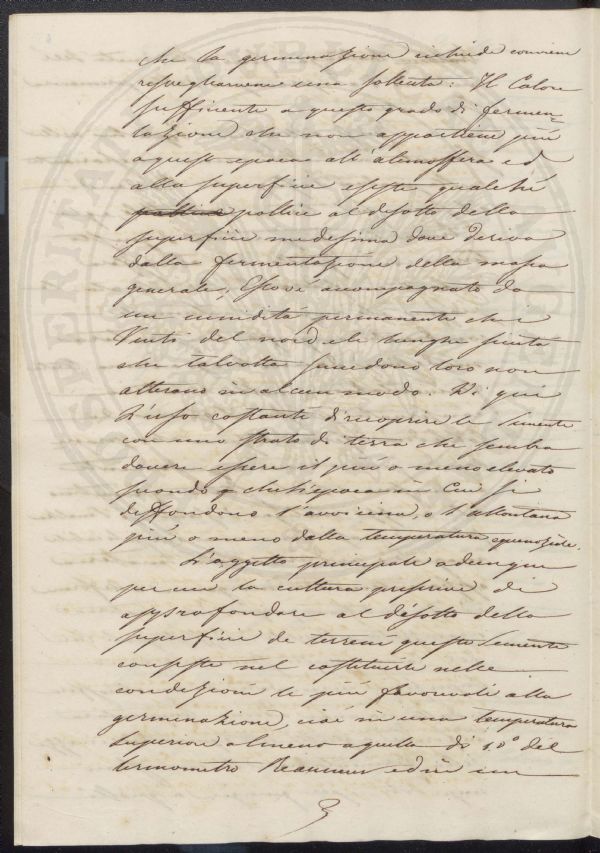 che la germinazione richiede conviene
risvegliarvene una sollenta: Il Calore
sufficiente a questo grado di fermen-
tazione che non appartiene più
a quest'epoca all'atmosfera ed
alla superficie esiste qualche
pollice al disotto della
superficie medesima dove deriva
dalla fermentazione della massa
generale; Esso v'è accompagnato da
un umidità permanente che i
Venti del nord, e le lunghe siccità
che talvolta succedono loro non
alterano in alcun modo. Di qui
l'uso costante di ricoprire le Sementi
con uno strato di terra che sembra
dovere essere il più o meno elevato
secondo che l'epoca in cui si
diffondono s'avvicina, o s'allontana
più o meno dalla temperatura equinoziale.
L'oggetto principale adunque
per cui la cultura prescrive di
approfondare al disotto della
superficie de terreni queste Sementi
consiste nel costituirle nelle
condizioni le più favorevoli alla
germinazione, cioè in una temperatura
superiore almeno a quella di 10° del
termometro Reaumur ed in un
3